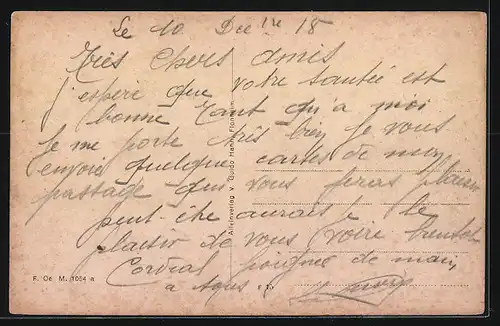 Le 10 Dec bre 18
Très Chers Amis
j'espère que votre santée est
bonne tant qu'a moi
Je me porte très bien Je vous
envoie quelque cartes de mon
passage qui vous feras plaisir
peut-être aurais je le
plaisir de vous voire bientot
Cordial poignée de main,
a tous.
Alleinverlag v. Guido Henn, Flonheim.
F. Oe. M. 1084 e